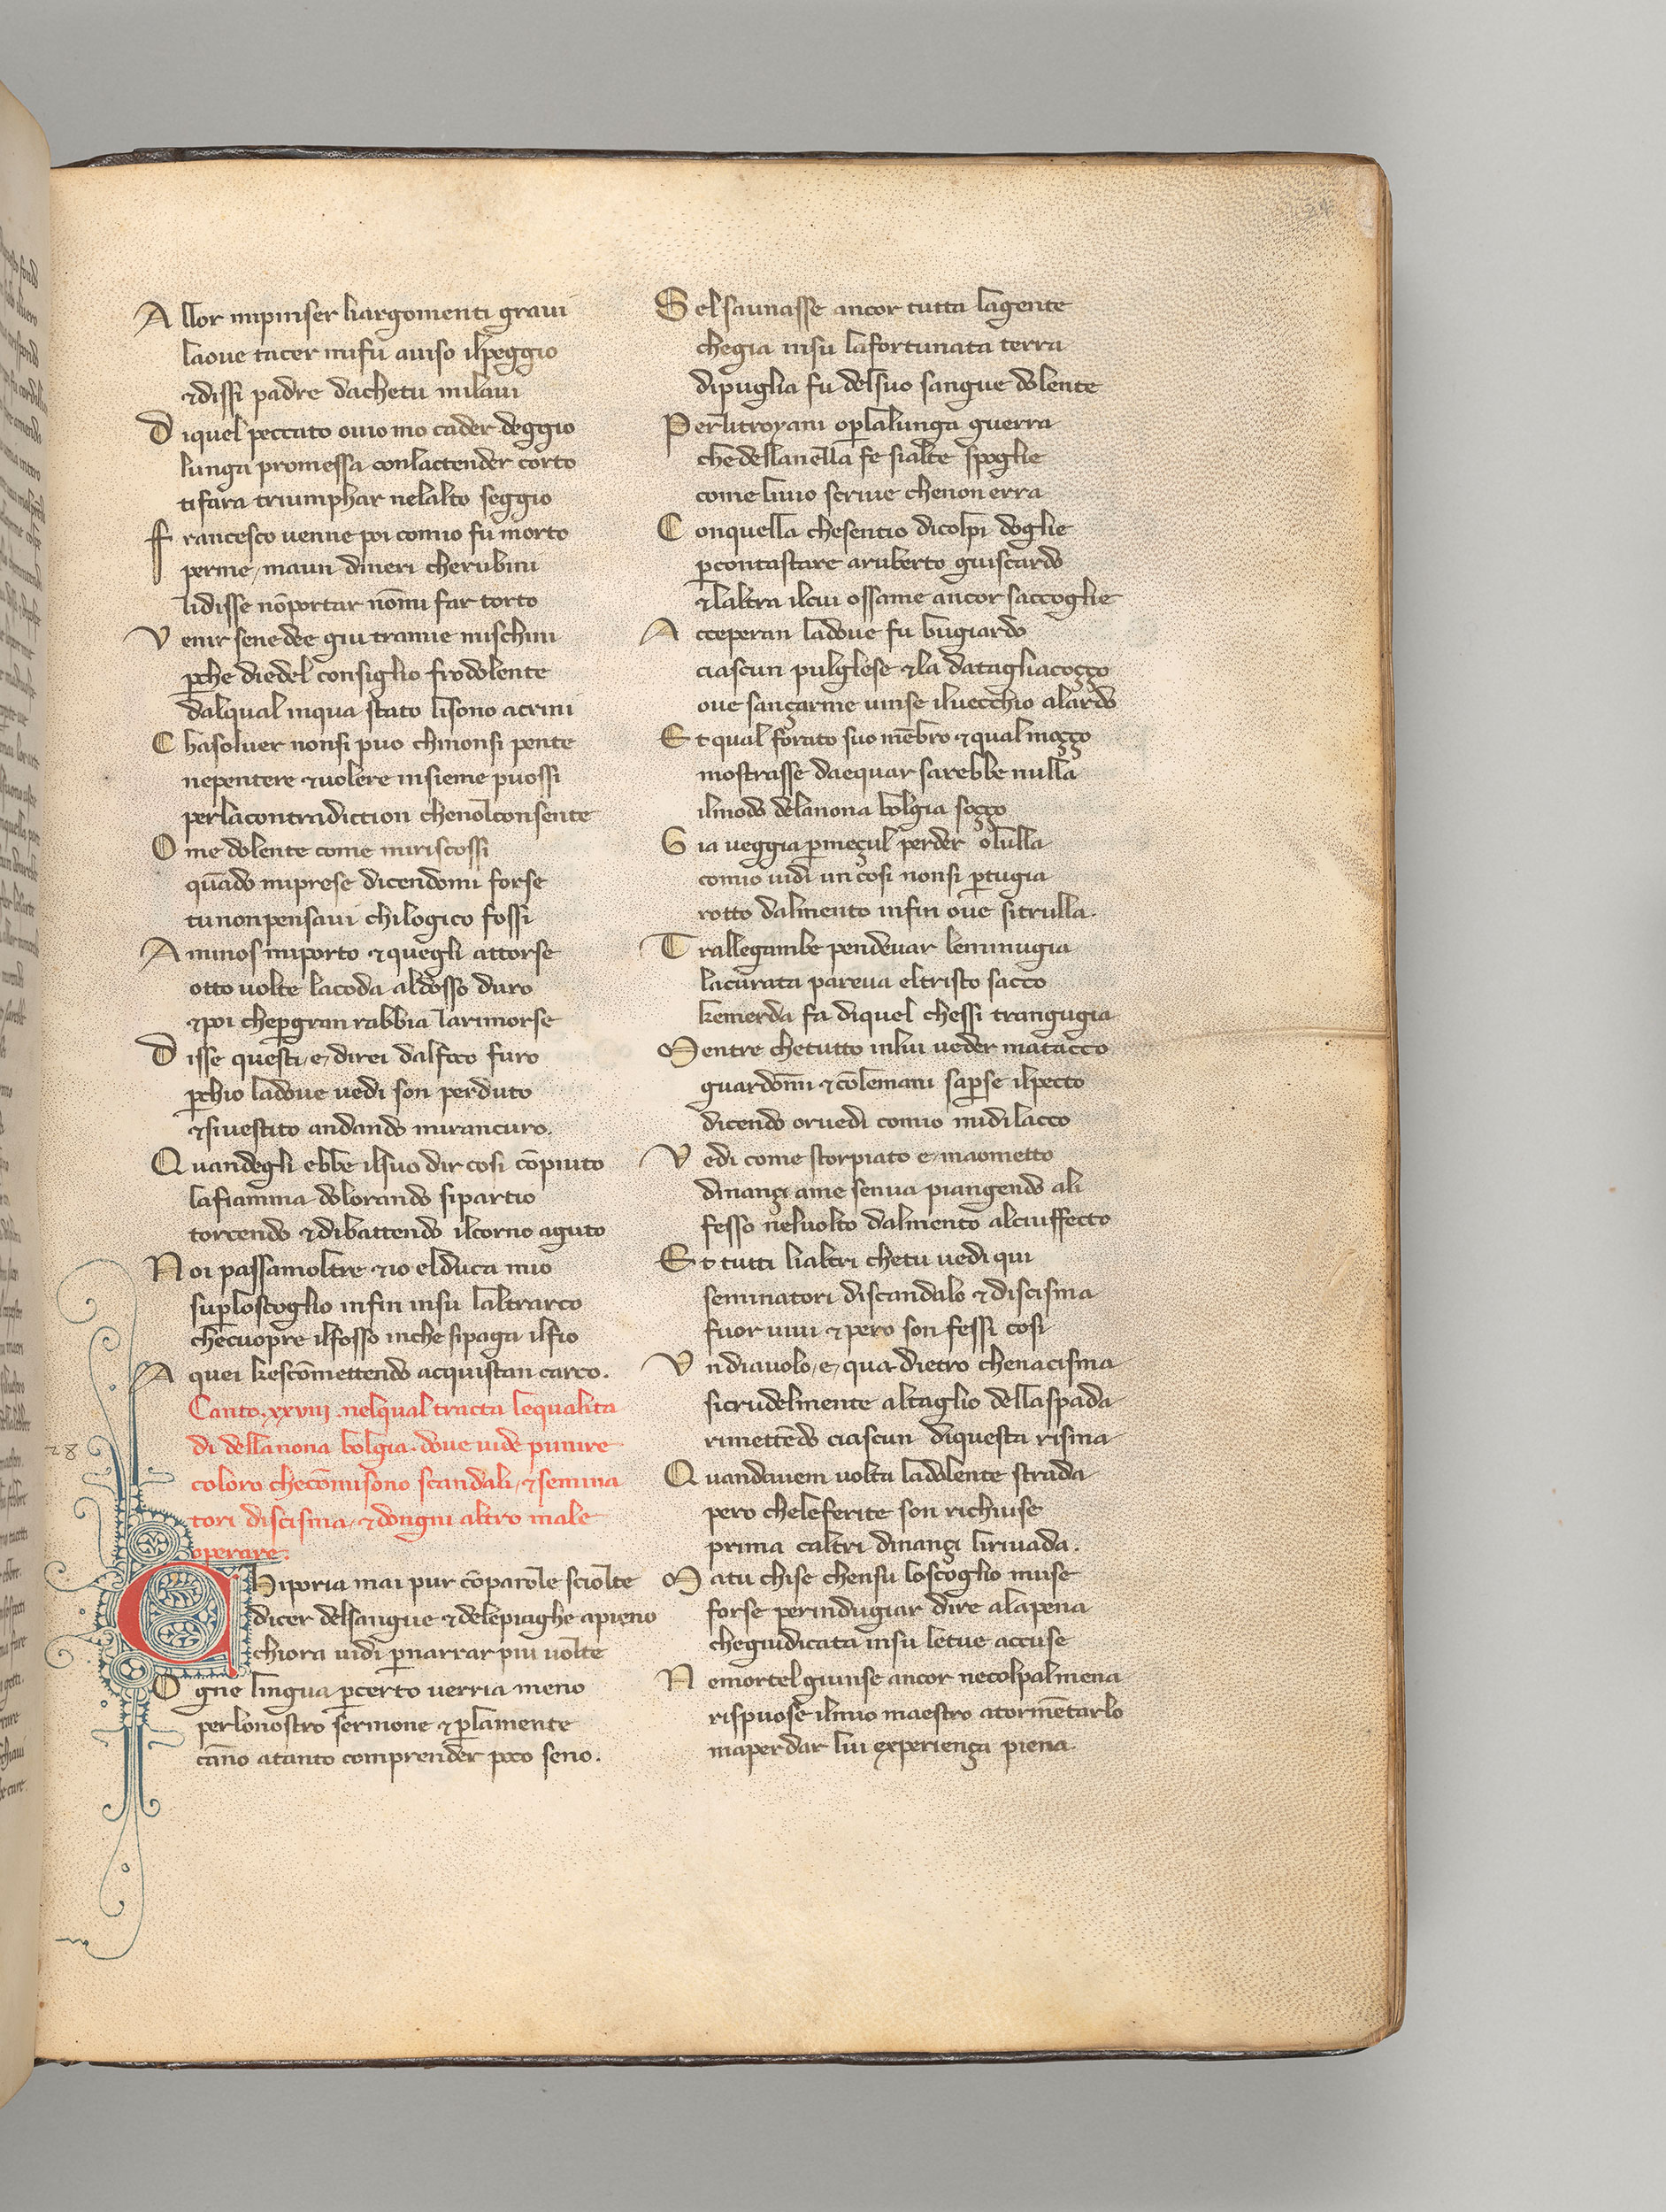 Allor mipinser liargomenti graui
laoue tacer mifu auiso ilpeggio
⁊dissi padre dachetu milaui
Diquel peccato ouio mo cader deggio
lunga promessa conlactender corto
tifara triumphar nelalto seggio
Francesco uenne poi comio fu morto
perme, maun dineri cherubini
lidisse nōportar nōmi far torto
Venir sene dee giu tramie mischini
ꝑche diedel consiglio frodolente
dalqual inqua stato lisono acrini
Chasoluer nonsi puo chinonsi pente
nepentere ⁊uolere insieme puossi
perlacontradiction chenolconsente
Ome dolente come miriscossi
quādo miprese dicendomi forse
tunonpensaui chilogico fossi
Aminos miporto ⁊quegli attorse
otto uolte lacoda aldosso duro
⁊poi cheꝑgran rabbia larimorse
Disse questi,e,direi dalfoco furo
ꝑchio ladoue uedi son perduto
⁊siuestito andando mirancuro.
Quandegli ebbe ilsuo dir cosi cōpiuto
lafiamma dolorando sipartio
torcendo ⁊dibattendo ilcorno aguto
Noi passamoltre ⁊io elduca mio
suꝑloscoglio infin insu laltrarco
checuopre ilfosso inche sipaga ilfio
Aquei kescōmettendo acquistan carco.
Canto.xxviii.nelqual tracta lequalita
di dellanona bolgia.doue uide punire
coloro checōmisono scandali,⁊semina
tori discisma,⁊dongni altro male
operare.
28
Chiporia mai pur cōparole sciolte
dicer delsangue ⁊delepiaghe apieno
chiora uidi ꝑnarrar piu uolte
Ogne lingua ꝑcerto uerria meno
perlonostro sermone ⁊ꝑlamente
cāno atanto comprender poco seno.
Selsaunasse ancor tutta lagente
chegia insu lafortunata terra
dipuglia fu delsuo sangue dolente
Perlitroyani oꝑlalunga guerra
chedellanella fe sialte spoglie
come liuio scriue chenon erra
Conquella chesentio dicolpi doglie
ꝑcontastare aruberto guiscardo
⁊laltra ilcui ossame ancor saccoglie
Acceperan ladoue fu bugiardo
ciascun pulglese ⁊la datagliacoçço
oue sançarme uinse iluecchio alardo
Et qual forato suo mēbro ⁊qual moçço
mostrasse daequar sarebbe nulla
ilmodo delanona bolgia soçço
Gia ueggia ꝑmeçul perder olulla
comio uidi un cosi nonsi ꝑtugia
rotto dalmento infin oue sitrulla.
Trallegambe pendeuar leminugia
lacurata pareua eltristo sacco
kemerda fa diquel chessi trangugia
Mentre chetutto inlui ueder matacco
guardōmi ⁊cōlemani saꝑse ilpecto
dicendo oruedi comio midilacco
Vedi come storpiato e,maometto
dinançi ame senua piangendo ali
fesso neluolto dalmento alciuffecto
Et tutti lialtri chetu uedi qui
seminatori discandalo ⁊discisma
fuor uiui ⁊pero son fessi cosi
Vndiauolo,e,qua dietro chenacisma
sicrudelmente altaglio dellaspada
rimettēdo ciascun diquesta risma
Quandauem uolta ladolente strada
pero cheleferite son richiuse
prima caltri dinançi liriuada.
Matu chise chensu loscoglio muse
forse perindugiar dire alapena
chegiudicata insu letue accuse
Nemortel giunse ancor necolpalmena
rispuose ilmio maestro atormētarlo
maperdar lui experiença piena.